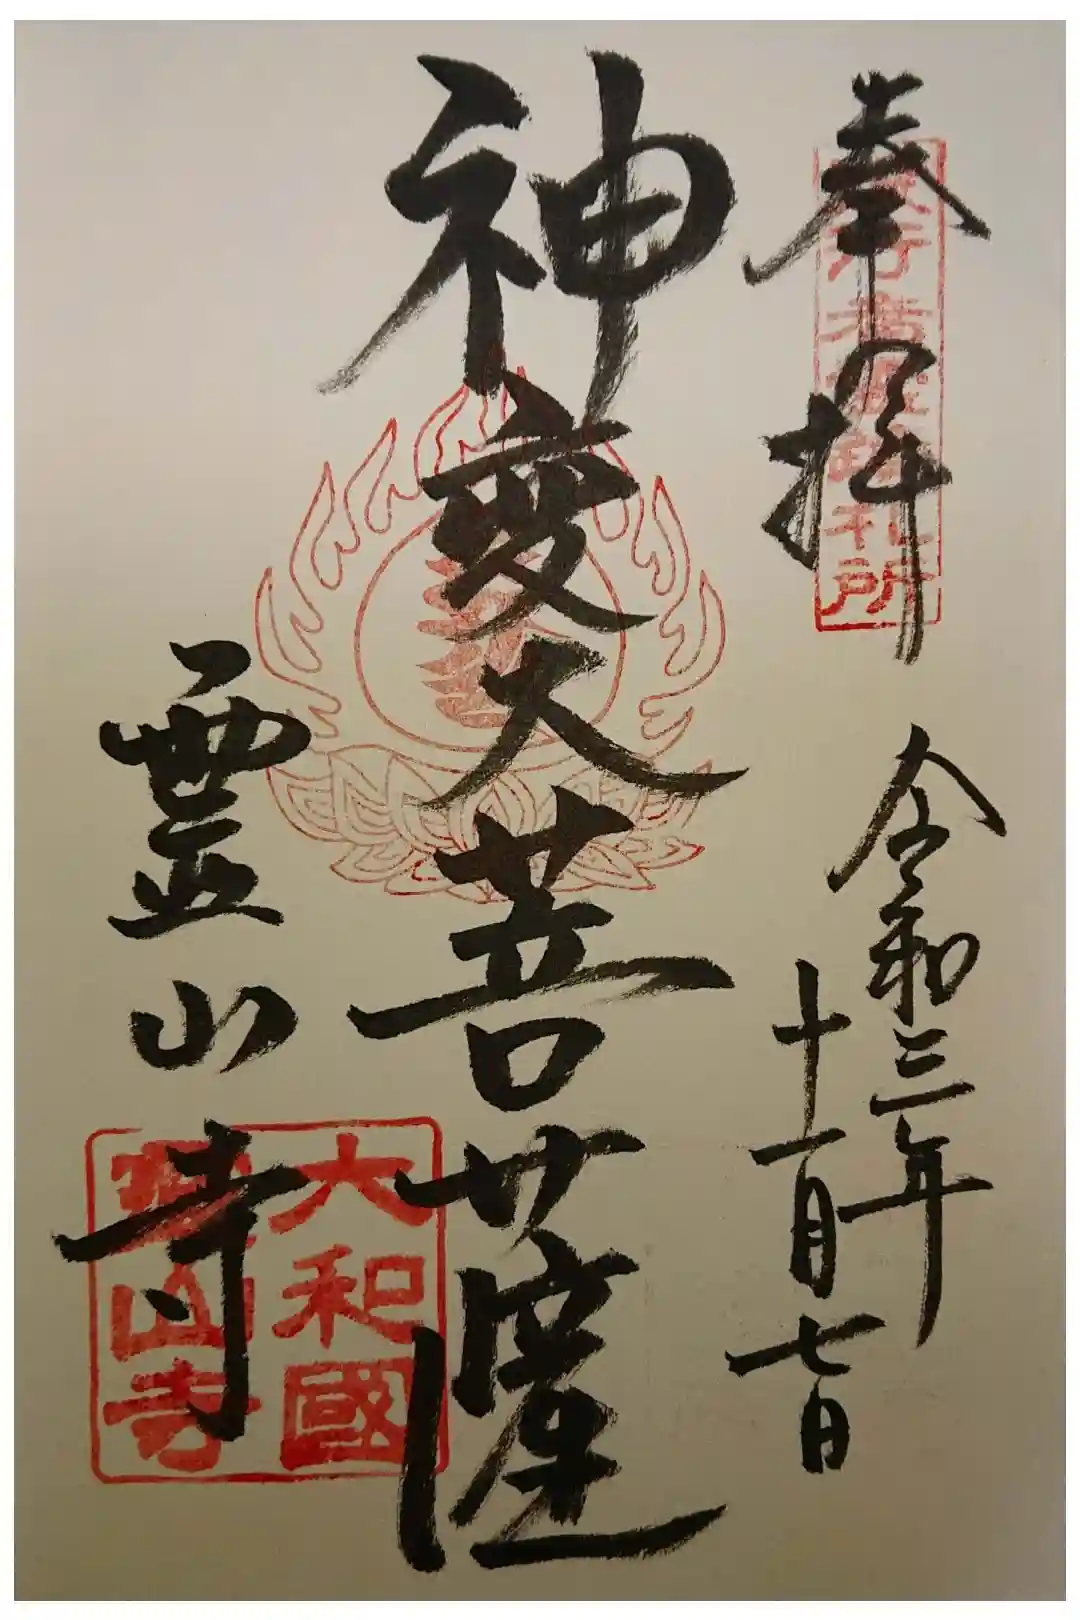 奉拝
役行者霊蹟札所
令和三年
十一月七日
神変大菩薩
霊山寺
大和國
霊山寺